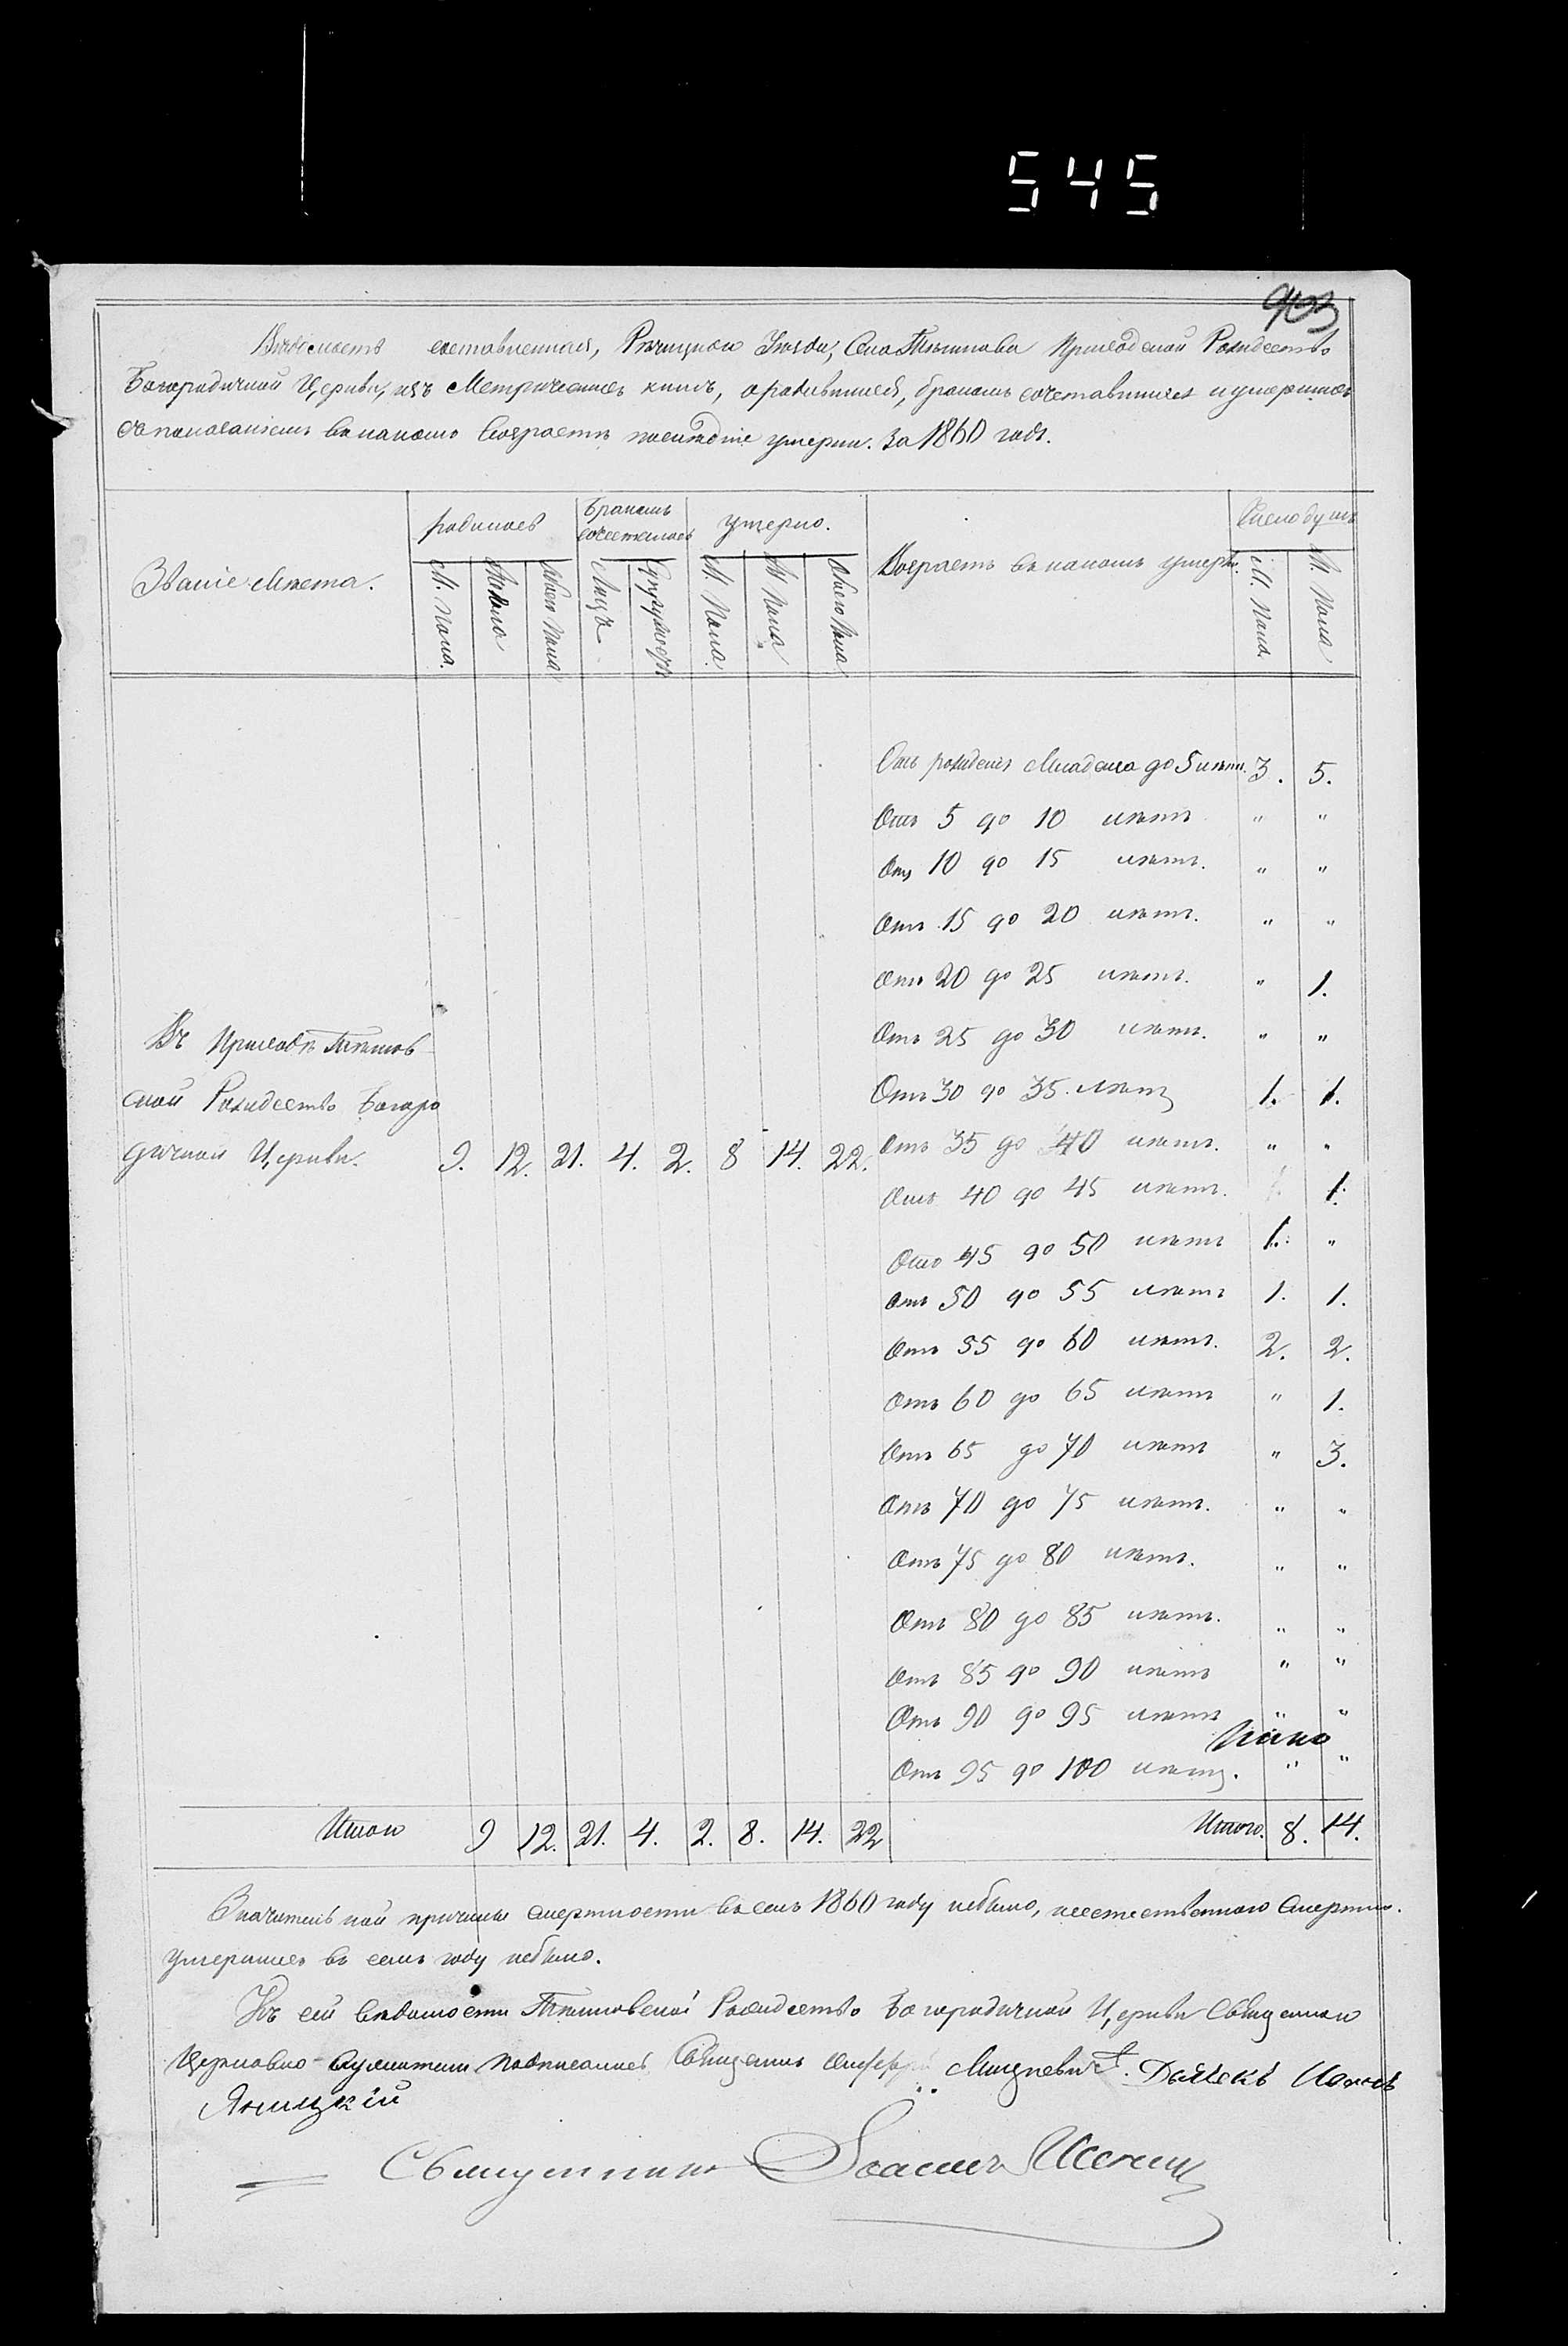 545
903
Ведомость составленная, Речицкаго Уезда, Села Приходской Рождество
Богородичной Церкви, изъ Метрическихъ книгъ, о родившихся, бракомъ сочетавшихся и умершихъ
съ показаніемъ въ какомъ возрасте последніе умерли. За 1860 годъ.
Званіе места.
родилось
бракомъ сочеталось
умерло.
Возрастъ въ какомъ умерли.
Число душъ
М. пола.
Ж. пола
Обоего пола
Лица
Супружествъ
М. пола.
Ж. пола
Обоего пола
М. пола.
Ж. пола
Отъ рожденія младенца до 5 летъ. 3. 5.
Отъ 5 до 10 летъ " "
Отъ 10 до 15 летъ. " "
Отъ 15 до 20 летъ. " "
Отъ 20 до 25 летъ. " 1.
Отъ 25 до 30 летъ. " "
Отъ 30 до 35. летъ 1. 1.
Отъ 35 до 40 летъ. " "
Отъ 40 до 45 летъ. 1.
Отъ 45 до 50 летъ 1. "
Отъ 50 до 55 летъ 1. 1.
Отъ 55 до 60 летъ. 2. 2.
Отъ 60 до 65 летъ " 1.
Отъ 65 до 70 летъ " 3.
Отъ 70 до 75 летъ. " "
Отъ 75 до 80 летъ. " "
Отъ 80 до 85 летъ. " "
Отъ 85 до 90 летъ " "
Отъ 90 до 95 летъ " "
Отъ 95 до 100 летъ. " "
Въ Приходе
ской Рождество Богоро
дичной Церкви. 9. 12. 21. 4. 2. 8 14. 22.
Итого 9 12. 21. 4. 2. 8. 14. 22 Итого. 8. 14.
Значительной причины смертности въ семъ 1860 году небыло, неестественною смертію.
умершихъ въ семъ году небыло.
Къ сей ведомости Рождество Богородичной Церкви Священно
Церковно-служители подписались Священникъ Мицкевичъ. Дьячекъ
Яницкій
Священникъ